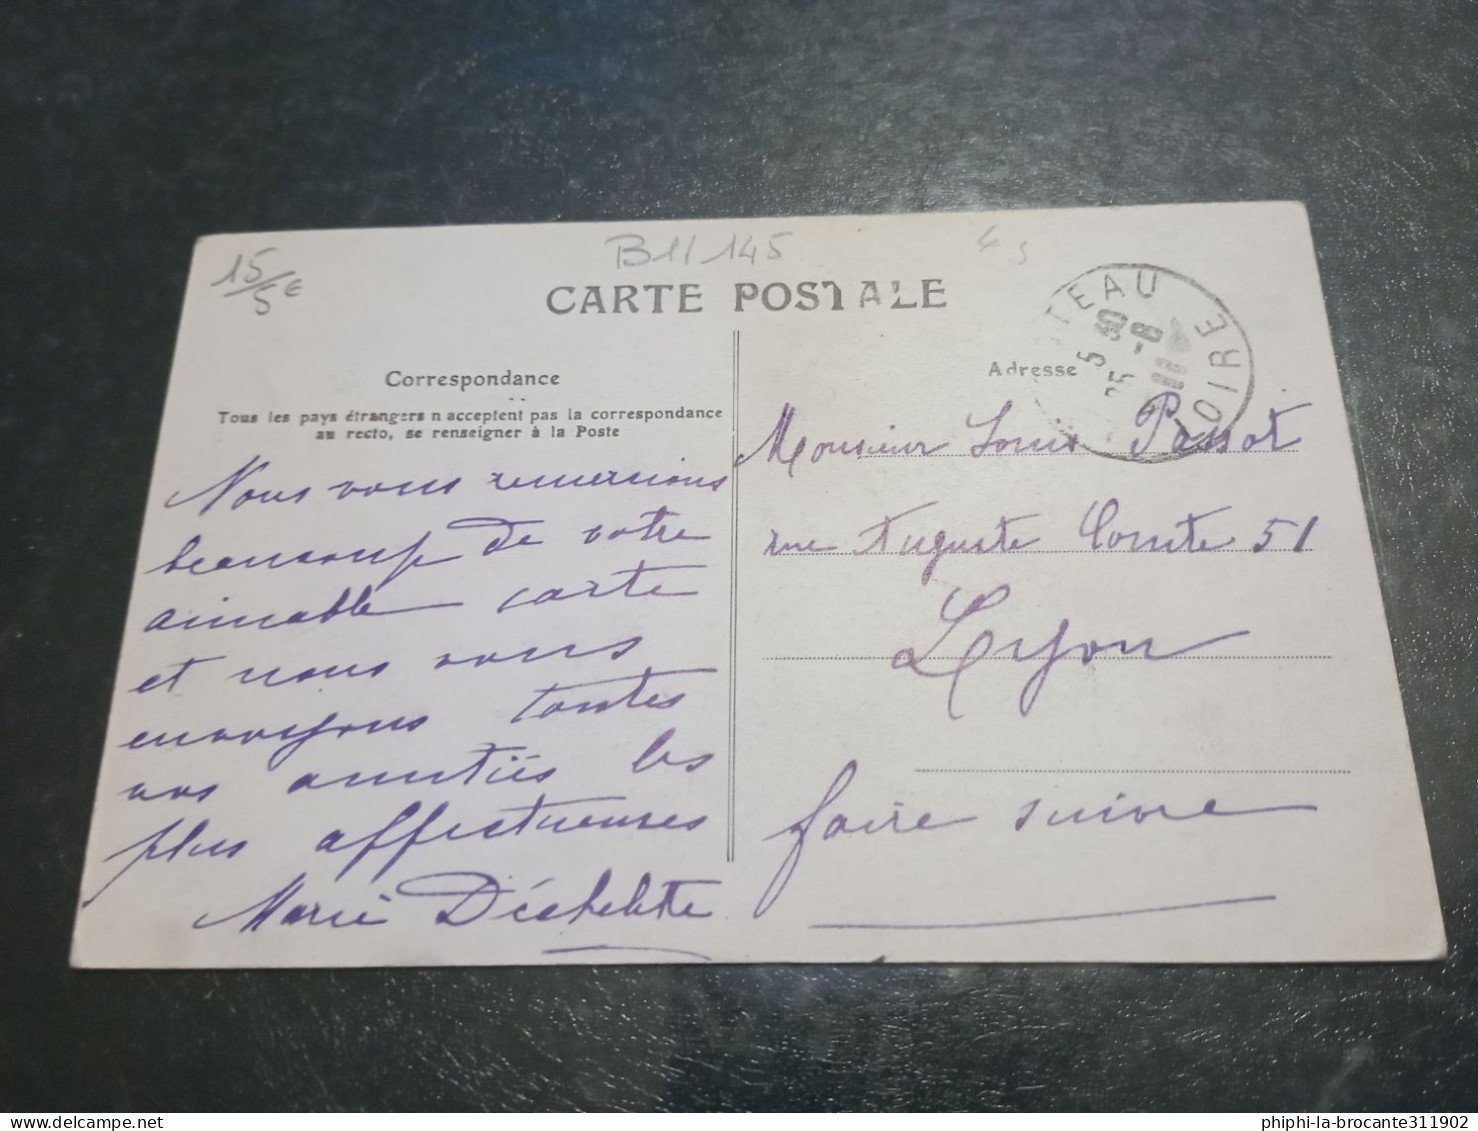 15/5€
B11/145
CARTE POSTALE
TEAU
OIRE
5 30
25 -8
11
Correspondance
Tous les pays étrangers n acceptent pas la correspondance
au recto, se renseigner à la Poste
Adresse
Nous vous remercions
beaucoup de votre
aimable carte
et nous vous
envoyons toutes
nos amitiés les
plus affectueuses
Marie Déchelette
Monsieur Louis Passot
rue Auguste Comte 51
Lyon
faire suivre
phiphi-la-brocante311902